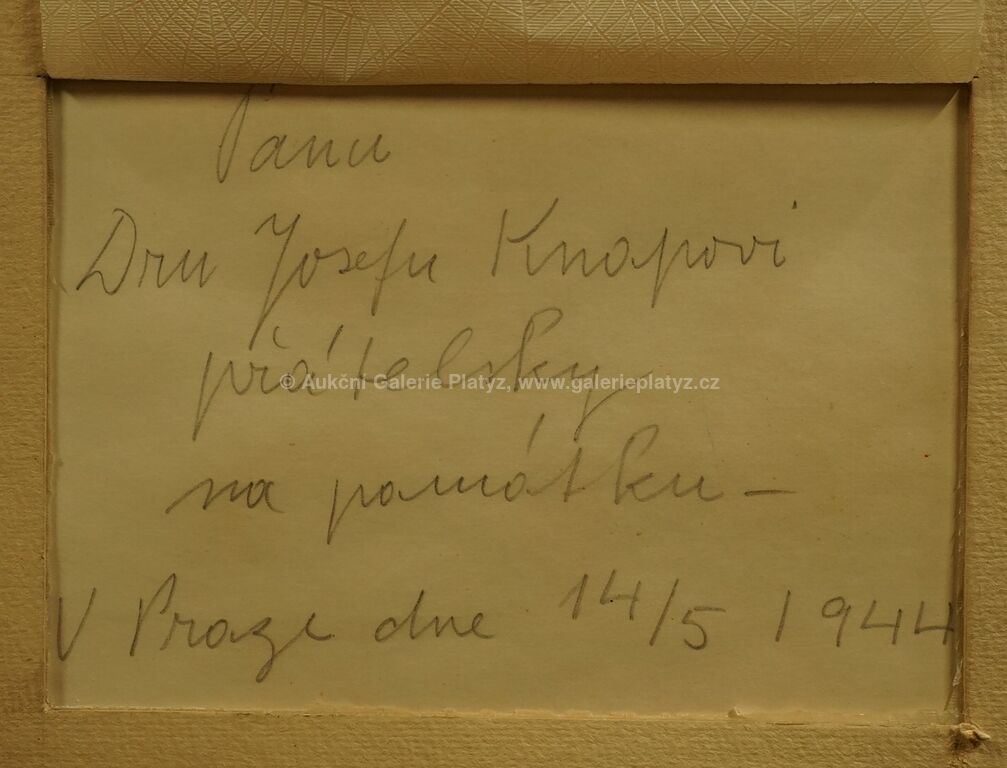 Pánu
Dru Josefu Knapovi
přátelsky
© Aukční Galerie Platýz, www.galerieplatyz.cz
na památku –
V Praze dne 14/5 1944